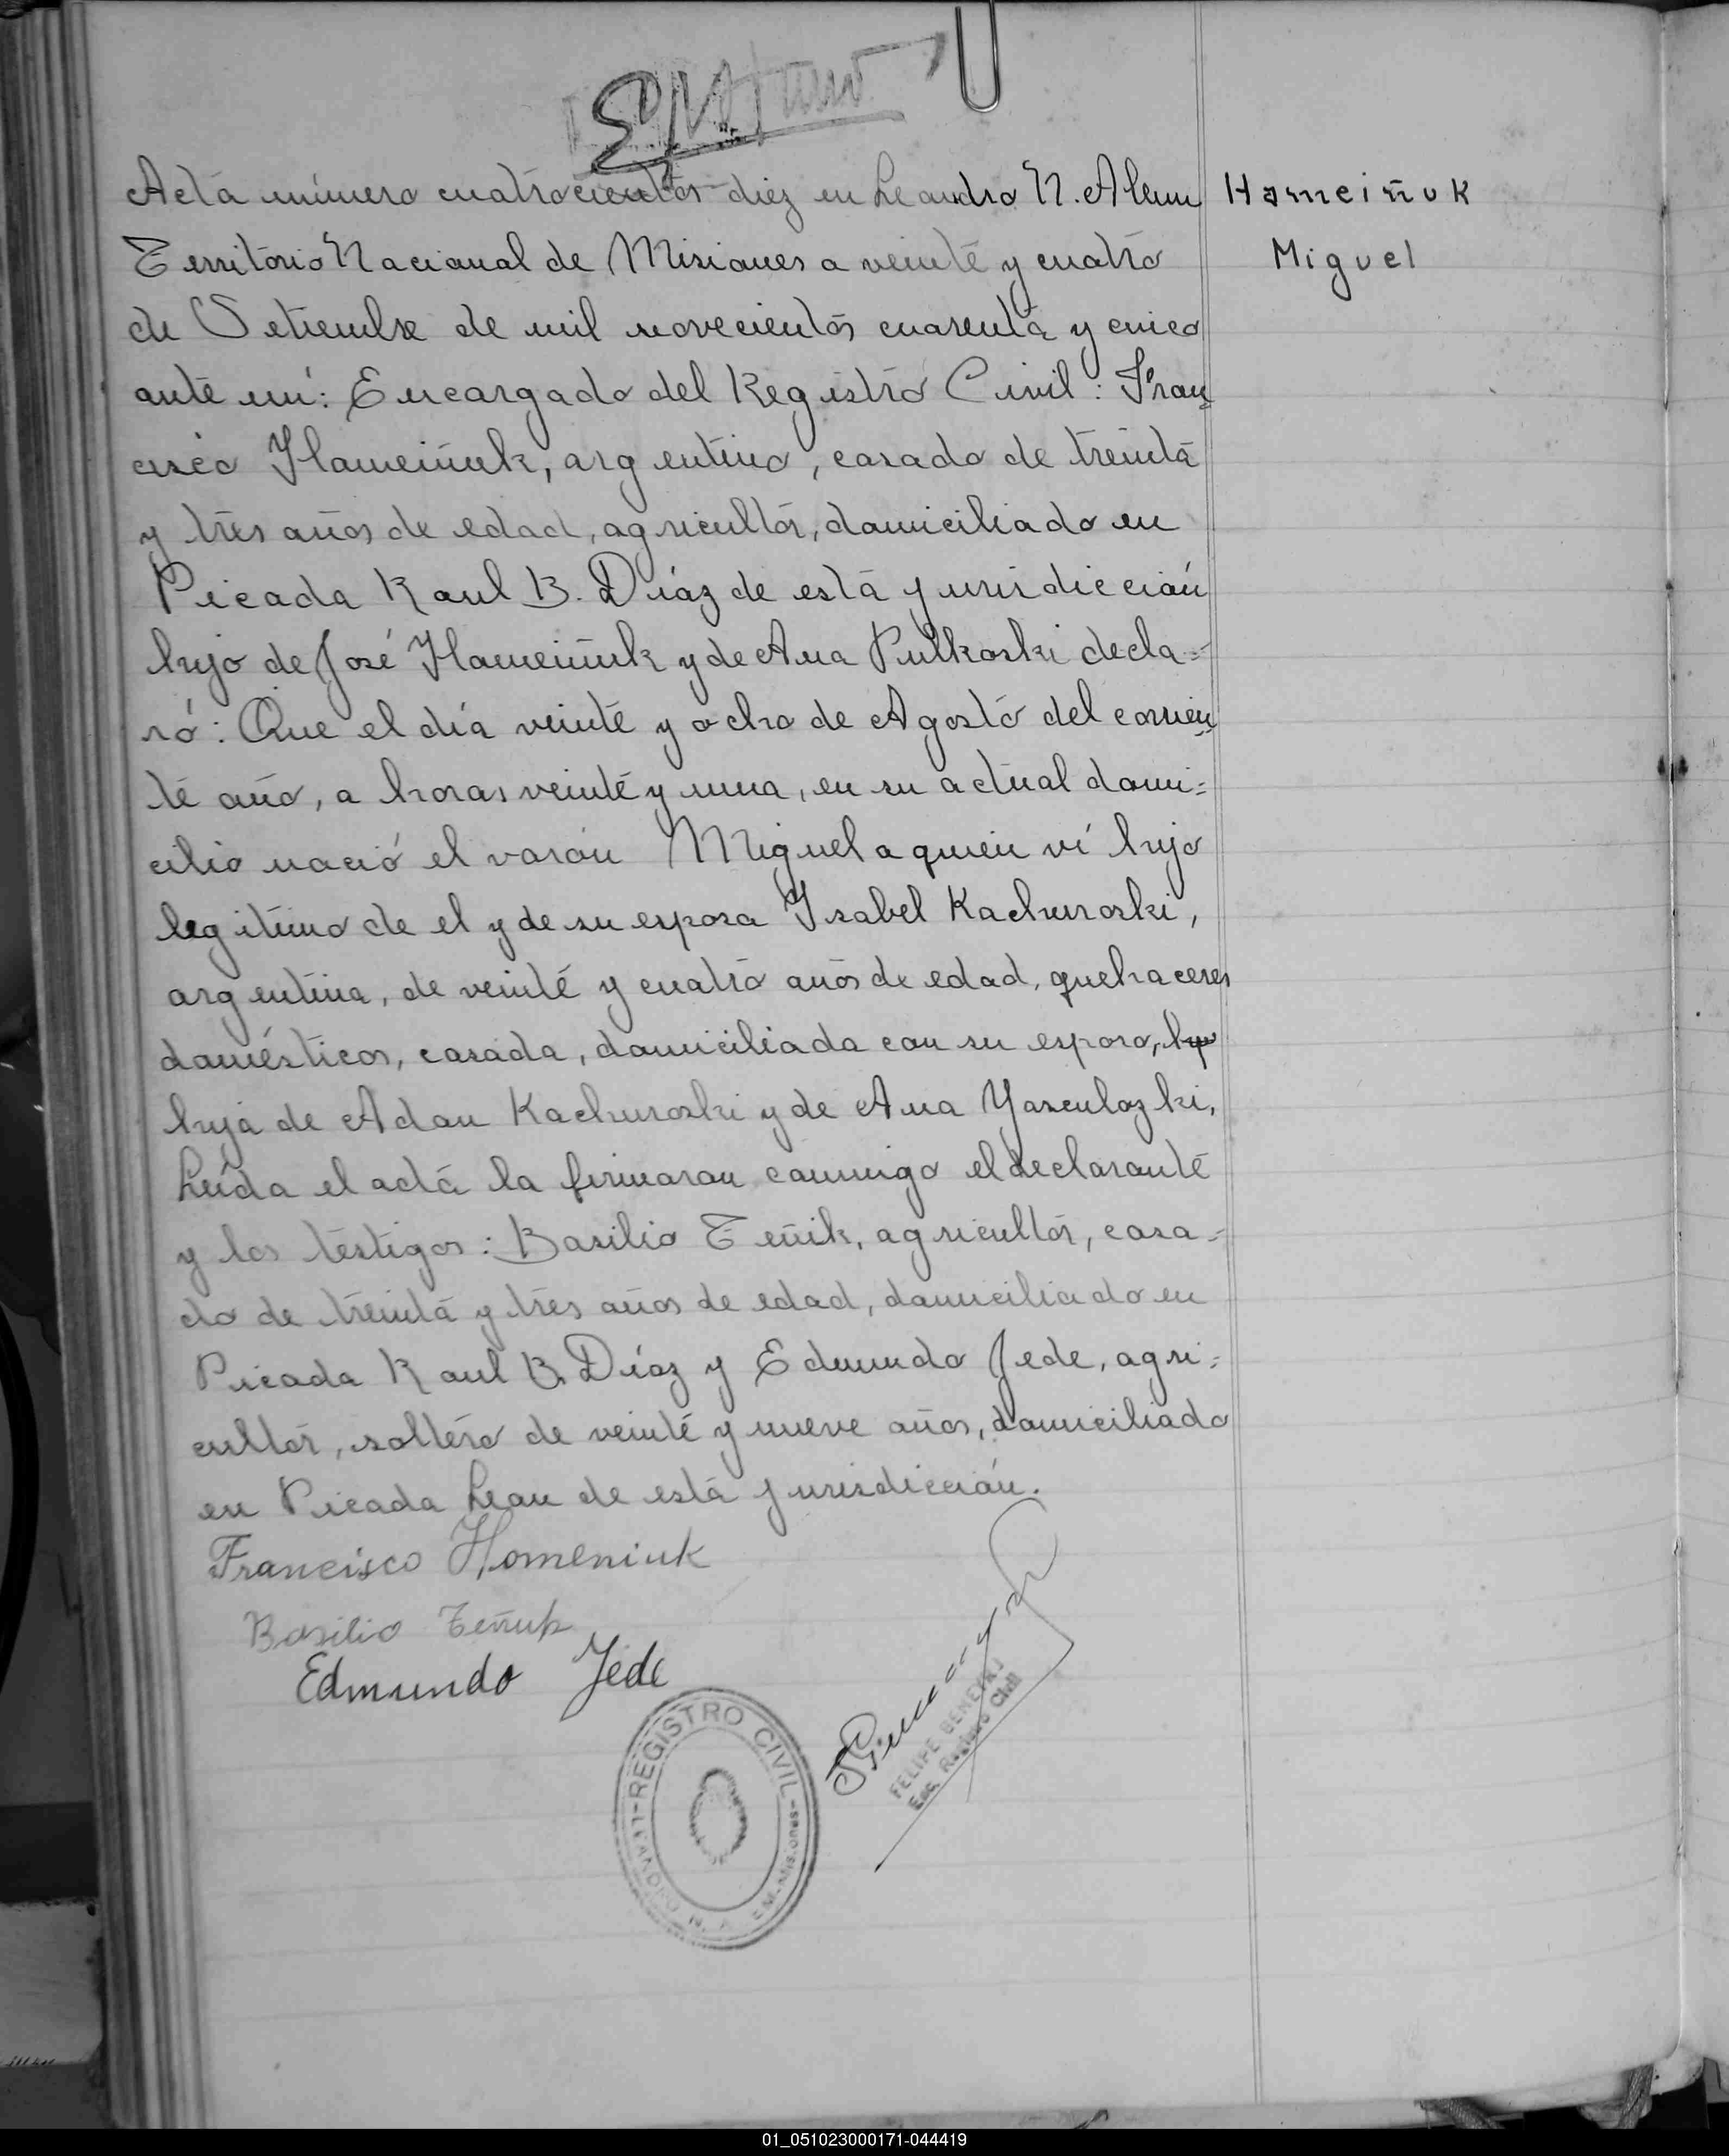 Acta número cuatrocientos diez en Leandro N. Alem
Territorio Nacional de Misiones a veinte y cuatro
de Setiembre de mil novecientos cuarenta y cinco
ante mí: Encargado del Registro Civil: Fran
cisco Hameiñuk, argentino, casado de treinta
y tres años de edad, agricultor, domiciliado en
Picada Raul B. Díaz de esta jurisdicción
hijo de José Hameiñuk y de Ana Pulkoski decla=
ró: Que el día veinte y ocho de Agosto del corrien
te año, a horas veinte y una, en su actual domi=
cilio nació el varón Miguel a quien ví hijo
legitimo de el y de su esposa Ysabel Kachuroski,
argentina, de veinte y cuatro años de edad, quehaceres
domésticos, casada, domiciliada con su esposo,
hija de Adan Kachuroski y de Ana Yasculozki,
Leída el acta la firmaron conmigo el declarante
y los testigos: Basilio Teñik, agricultor, casa=
do de treinta y tres años de edad, domiciliado en
Picada Raul B. Díaz y Edmundo Jede, agri=
cultor, soltero de veinte y nueve años, domiciliado
en Picada Lean de esta jurisdicción.
Francisco Homeniuk
Basilio Teñuk
Edmundo Jede
REGISTRO CIVIL
LEANDRO N. A EM - Misiones
FELIPE
Enc. Registro Civil
Hameiñuk
Miguel
01_051023000171-044419